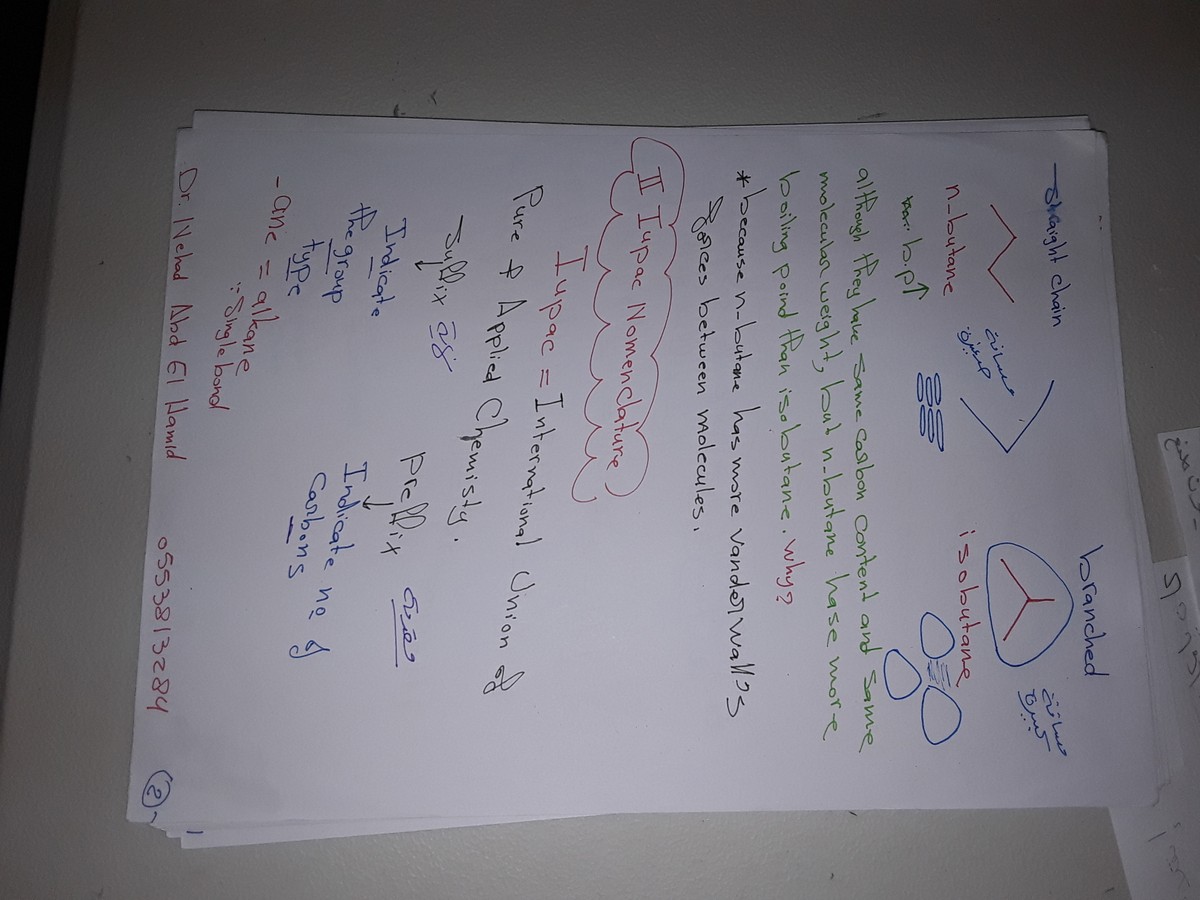 straight chain
branched
n-butane
isobutane
مسافة
صغيرة
مسافة
كبيرة
b.p↑
although they have same carbon content and same
molecular weight, but n-butane hase more
boiling point than isobutane. why?
* because n-butane has more vander wall's
forces between molecules.
II Iupac Nomenclature
Iupac = International Union of
Pure & Applied Chemisty.
Suffix
preffix
Indicate
the group
type
Indicate no of
Carbons
-ane = alkane
: Single bond
Dr. Nehad Abd El Hamid 0553813284
2